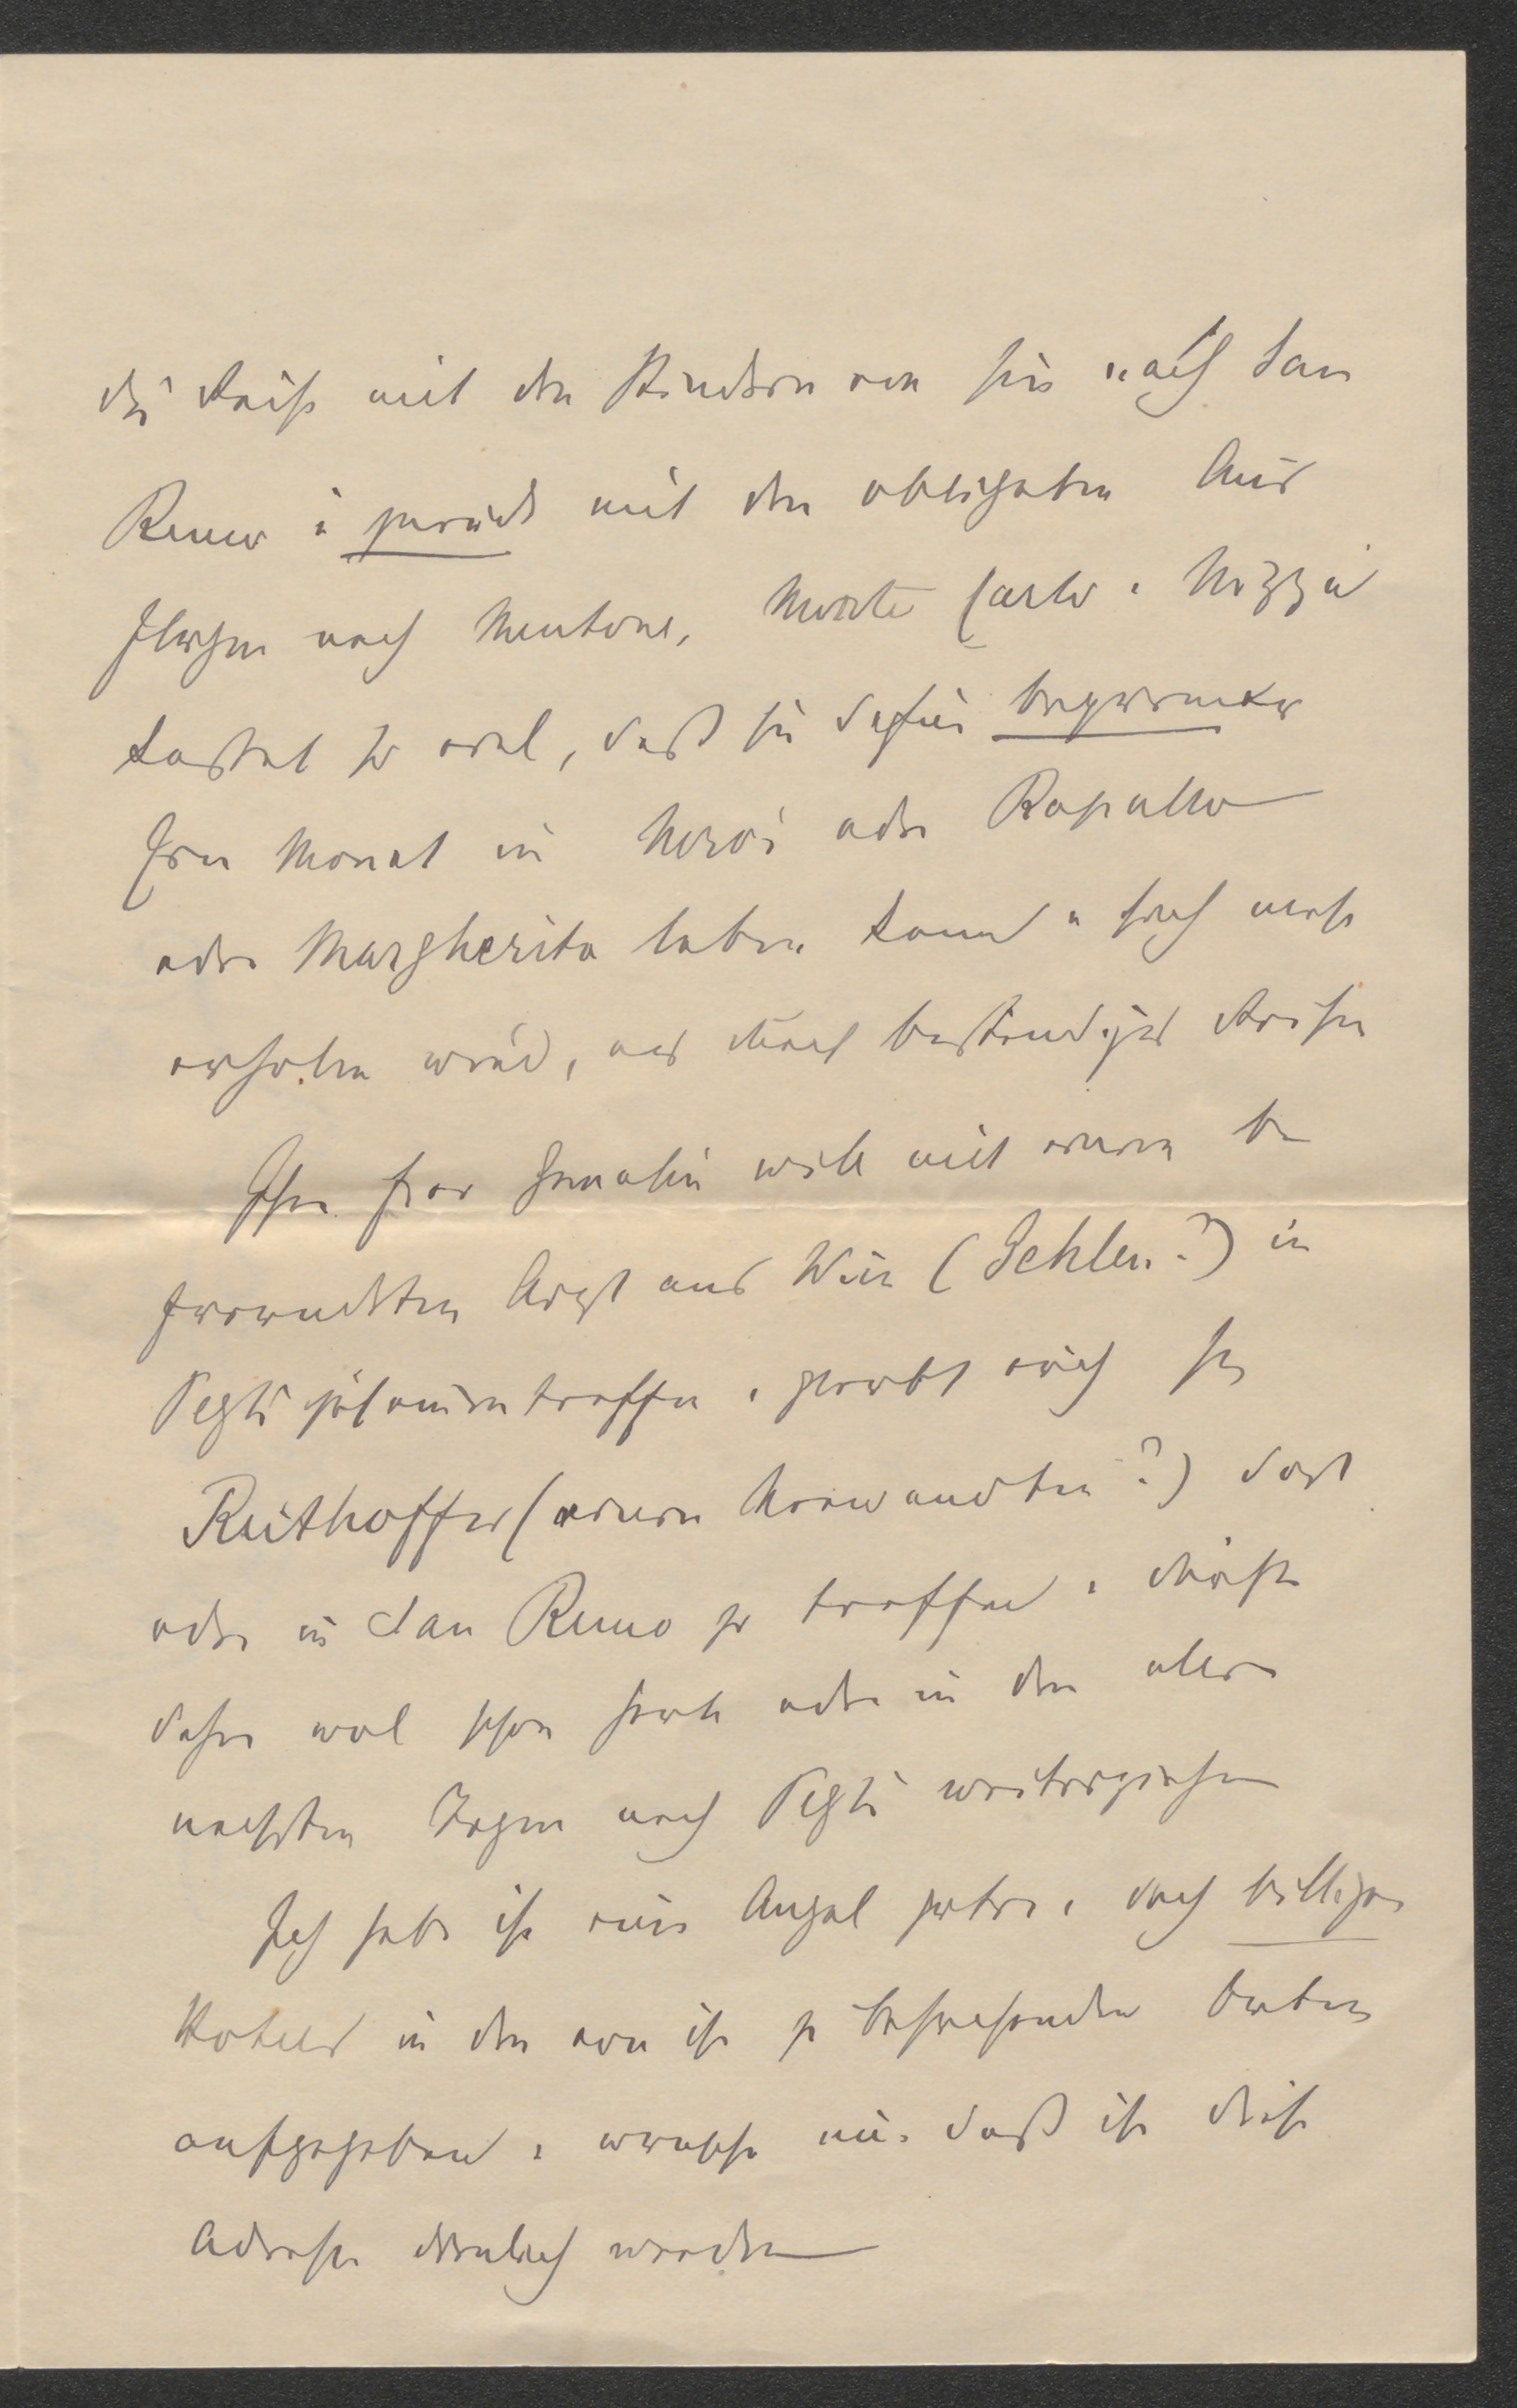 die Reise mit den Kindern von hier nach San
Remo u zurück mit den obligaten Aus
flügen nach Mentone, Monte Carlo u Nizza
kostet so viel, daß sie dafür bequem
einen Monat in Nervi oder Rapallo
oder Margherita leben kann u sich mehr
erholen wird, als durch beständiges Reisen
Ihre Frau Gemalin will mit einem be
freundeten Arzt aus Wien (Schlen.?) in
Pegli zusammentreffen u glaubt auch
Reithoffer (einen Verwandten?) dort
oder in San Remo zu treffen u dürfte
daher wol schon heute oder in den aller
nächsten Tagen nach Pegli weiterziehen
Ich habe ihr eine Anzal guter u doch billiger
Hotels in den von ihr zu besuchenden Orten
aufgegeben u wünsche nur daß ihr diese
Adressen dienlich werden